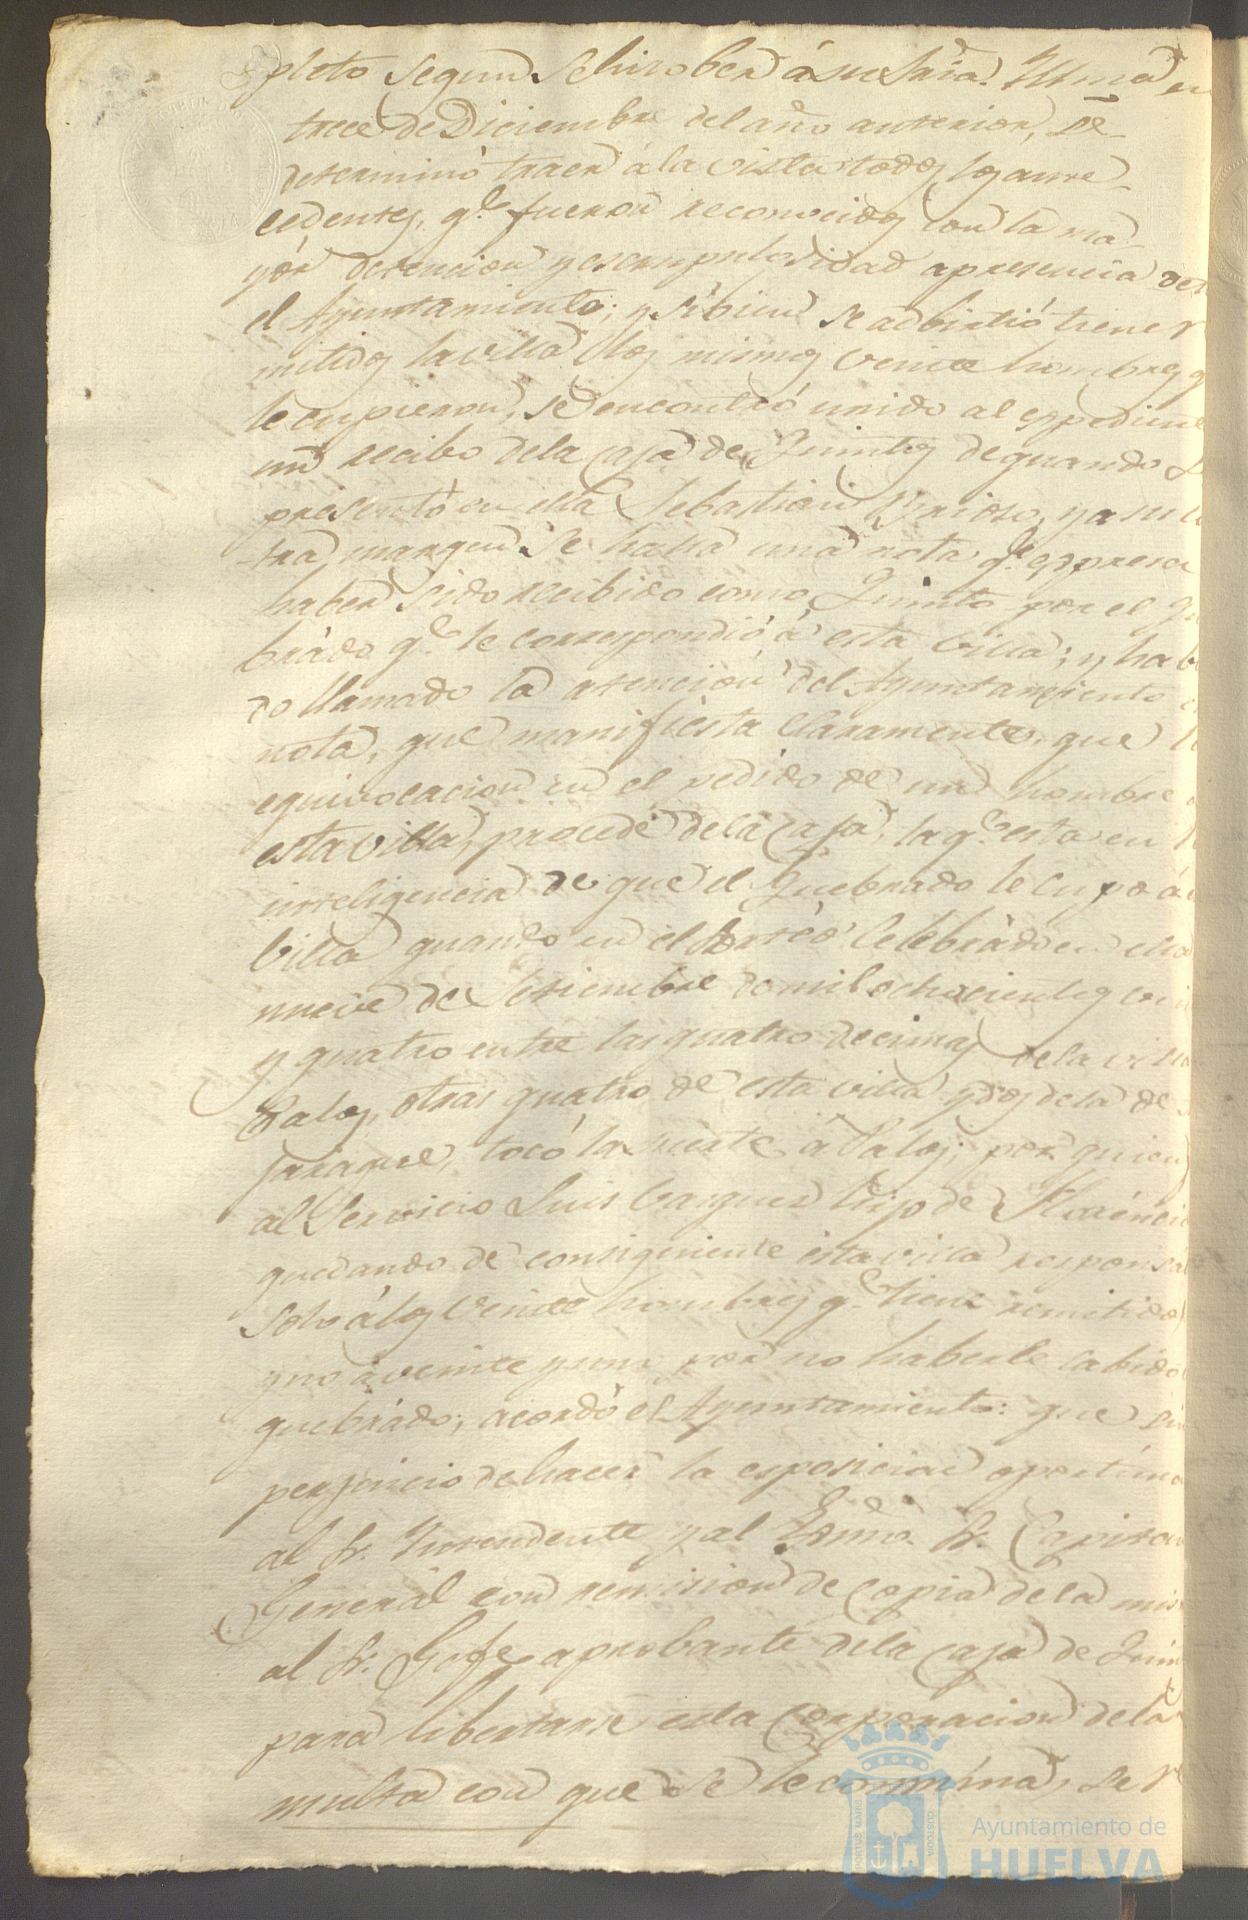 pleto segun se hiso ber á su Sria. Yllma. en
trece de Diciembre del año anterior, se
determinó traer á la vista todos los ante-
cedentes, qe. fueron reconocidos con la ma-
yor detencion y escrupulosidad a presencia de
el Ayuntamiento; y si bien se adbirtió tiene r
mitidos la villa los mismos veinte hombres q
le cupieron, se encontró unido al espedien
un recibo de la caja de Quintos de quando
presentó en ella Sebastian Brioso, y a su
tra margen se halla una nota qe. espresa
haber sido recibido como Quinto por el Qu
brado qe. le correspondió á esta villa; y hab
do llamado la atencion del Ayuntamiento
nota, que manifiesta claramente, que
equivocacion en el pedido de un hombre
esta villa, procede de la caja, la qe. esta en
inteligencia de que el Quebrado le cupo á
villa quando en el sorteo celebrado en ella
nueve de Setiembre de mil ochocientos vei
y quatro entre las quatro decimas de la villa
Palos, otras quatro de esta villa y dos de la de
jaraque, tocó la suerte á Palos; por quien
al Servicio Luis Basques hijo de Florencio
quedando de consiguiente esta villa responsa
solo á los veinte hombres qe. tiene remitidos
y no á veinte y uno, por no haberle cabido
quebrado; acordó el Ayuntamiento: que sin
perjuicio de hacer la esposicion oportuna
al Sr. Yntendente y al Esmo. Sr. Capitan
General con remision de copia de la mis
al Sr. Gefe aprobante de la caja de Quin
para libertarse esta Corporacion de la
multa con que se le conmina, se r
Ayuntamiento de
HUELVA
PORTUS MARIS
CUSTODIA